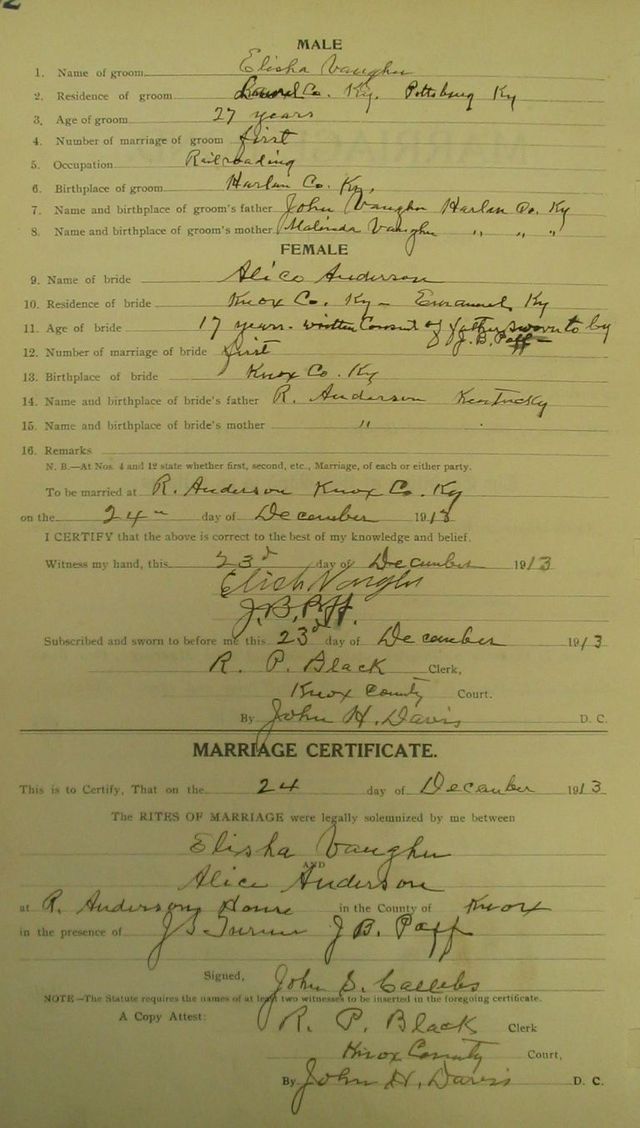 MALE
1. Name of groom Elisha Vaughn
2. Residence of groom Laurel Co. Ky. Pittsburg Ky
3. Age of groom 27 years
4. Number of marriage of groom first
5. Occupation Railroading
6. Birthplace of groom Harlan Co. Ky.
7. Name and birthplace of groom's father John Vaughn Harlan Co. Ky
8. Name and birthplace of groom's mother Malinda Vaughn " " "
FEMALE
9. Name of bride Alice Anderson
10. Residence of bride Knox Co. Ky - Emanuel Ky
11. Age of bride 17 years - written Consent of father sworn to by
J. B. Paff
12. Number of marriage of bride first
13. Birthplace of bride Knox Co. Ky
14. Name and birthplace of bride's father R. Anderson Kentucky
15. Name and birthplace of bride's mother "
16. Remarks
N. B.—At Nos. 4 and 12 state whether first, second, etc., Marriage, of each or either party.
To be married at R. Anderson Knox Co. Ky
on the 24th day of December 1913
I CERTIFY that the above is correct to the best of my knowledge and belief.
Witness my hand, this 23d day of December 1913
Elish Vaughn
J. B. Paff.
Subscribed and sworn to before me this 23d day of December 1913
R. P. Black Clerk,
Knox County Court.
By John H. Davis D. C.
MARRIAGE CERTIFICATE.
This is to Certify, That on the 24 day of December 1913
The RITES OF MARRIAGE were legally solemnized by me between
Elisha Vaughn
AND
Alice Anderson
at R. Anderson Home in the County of Knox
in the presence of J B. Paff
Signed, John S.
NOTE—The Statute requires the names of at least two witnesses to be inserted in the foregoing certificate.
A Copy Attest: R. P. Black Clerk
Knox County Court,
By John H. Davis D. C.